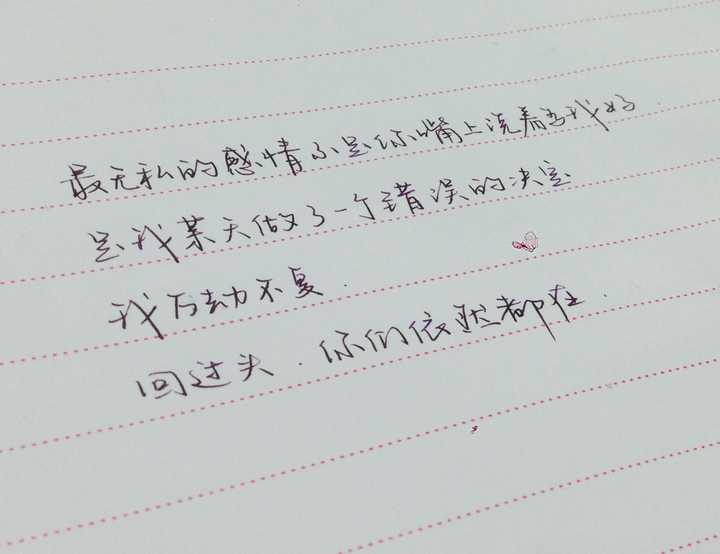 最无私的感情不是你嘴上说着为我好
是我某天做了一个错误的决定
我万劫不复.
回过头.你们依然都在.